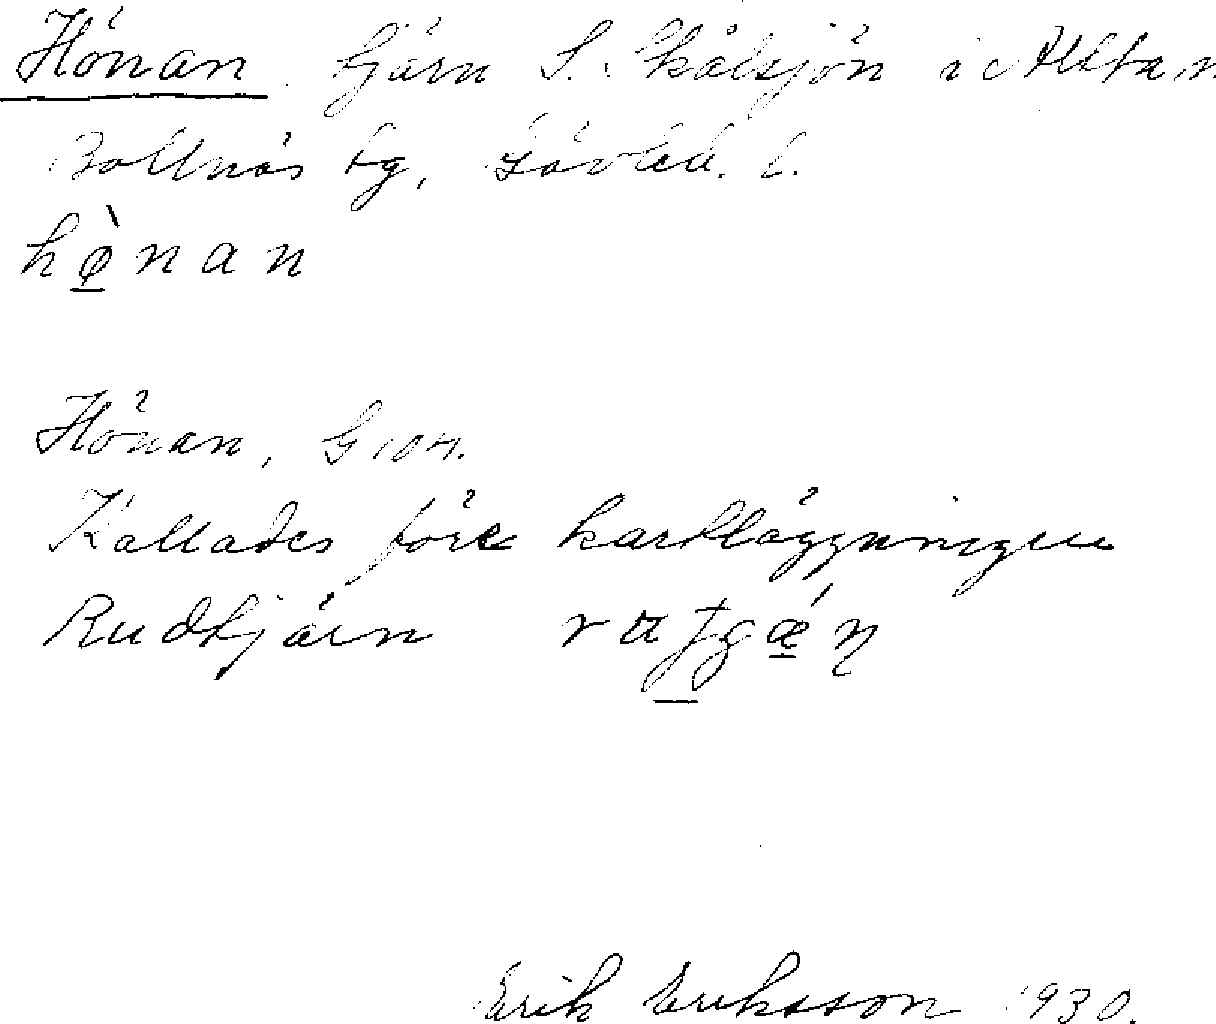 Hönan tjärn S. Skålsjön i Alfta sn.
Bollnäs tg, Gävleb. l.
hø̀nan
Hönan, G 104.
Kallades före kartläggningen
Rudtjärn
Erik Eriksson 1930.